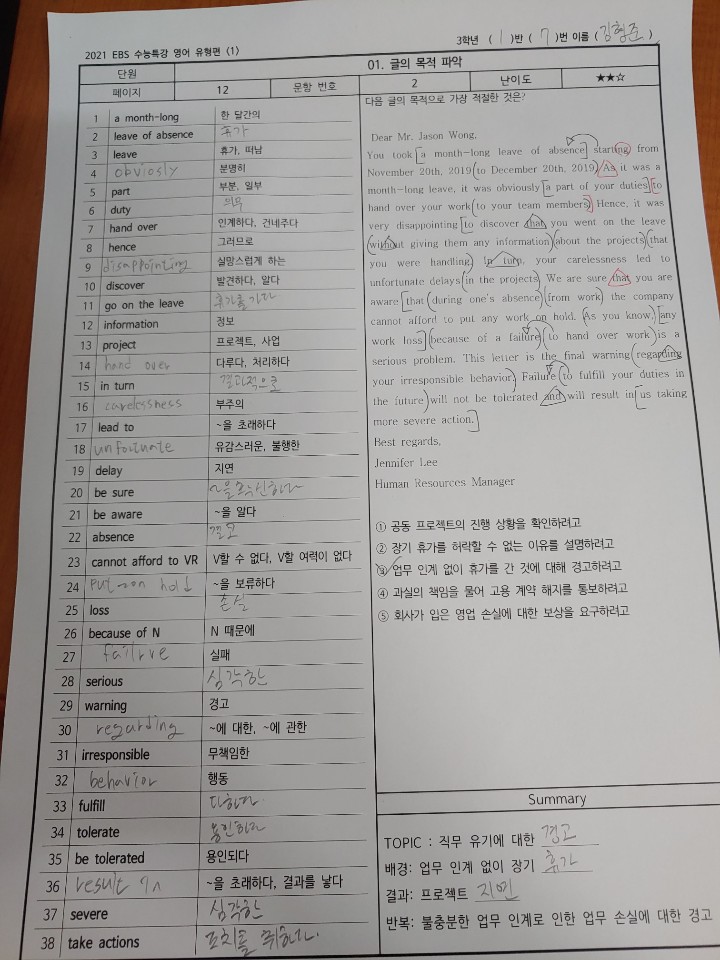 2021 EBS 수능특강 영어 유형편 (1)
3학년 ( 1 )반 ( 7 )번 이름 ( 김형준 )
단원 01. 글의 목적 파악
페이지 12 문항 번호 2 난이도 ★★☆
1 a month-long 한 달간의
2 leave of absence 휴가
3 leave 휴가, 떠남
4 obviosly 분명히
5 part 부분, 일부
6 duty 의무
7 hand over 인계하다, 건네주다
8 hence 그러므로
9 disappointing 실망스럽게 하는
10 discover 발견하다, 알다
11 go on the leave 휴가를 가다
12 information 정보
13 project 프로젝트, 사업
14 hand over 다루다, 처리하다
15 in turn 결과적으로
16 carelessness 부주의
17 lead to ~을 초래하다
18 unfortunate 유감스러운, 불행한
19 delay 지연
20 be sure ~을 확신하다
21 be aware ~을 알다
22 absence 결근
23 cannot afford to VR V할 수 없다, V할 여력이 없다
24 put on hold ~을 보류하다
25 loss 손실
26 because of N N 때문에
27 failrve 실패
28 serious 심각한
29 warning 경고
30 regarding ~에 대한, ~에 관한
31 irresponsible 무책임한
32 behavior 행동
33 fulfill 다하다
34 tolerate 용인하다
35 be tolerated 용인되다
36 result in ~을 초래하다, 결과를 낳다
37 severe 심각한
38 take actions 조치를 취하다.
다음 글의 목적으로 가장 적절한 것은?
Dear Mr. Jason Wong,
You took a month-long leave of absence starting from
November 20th, 2019 to December 20th, 2019. As it was a
month-long leave, it was obviously a part of your duties to
hand over your work to your team members. Hence, it was
very disappointing to discover that you went on the leave
without giving them any information about the projects that
you were handling. In turn, your carelessness led to
unfortunate delays in the projects. We are sure that you are
aware that during one's absence from work, the company
cannot afford to put any work on hold. As you know, any
work loss because of a failure to hand over work is a
serious problem. This letter is the final warning regarding
your irresponsible behavior. Failure to fulfill your duties in
the future will not be tolerated and will result in us taking
more severe action.
Best regards,
Jennifer Lee
Human Resources Manager
① 공동 프로젝트의 진행 상황을 확인하려고
② 장기 휴가를 허락할 수 없는 이유를 설명하려고
③ 업무 인계 없이 휴가를 간 것에 대해 경고하려고
④ 과실의 책임을 물어 고용 계약 해지를 통보하려고
⑤ 회사가 입은 영업 손실에 대한 보상을 요구하려고
Summary
TOPIC : 직무 유기에 대한 경고
배경: 업무 인계 없이 장기 휴가
결과: 프로젝트 지연
반복: 불충분한 업무 인계로 인한 업무 손실에 대한 경고